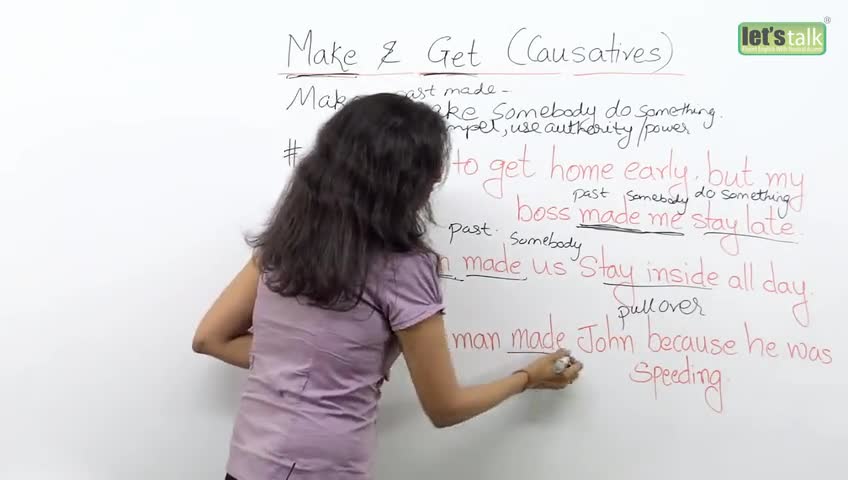 let's talk
®
Make & Get (Causatives)
Mak past made -
ke somebody do something.
mpel, use authority/power
# to get home early, but my
past somebody do something
boss made me stay late.
past. somebody
n made us stay inside all day.
pull over
man made John because he was
speeding.